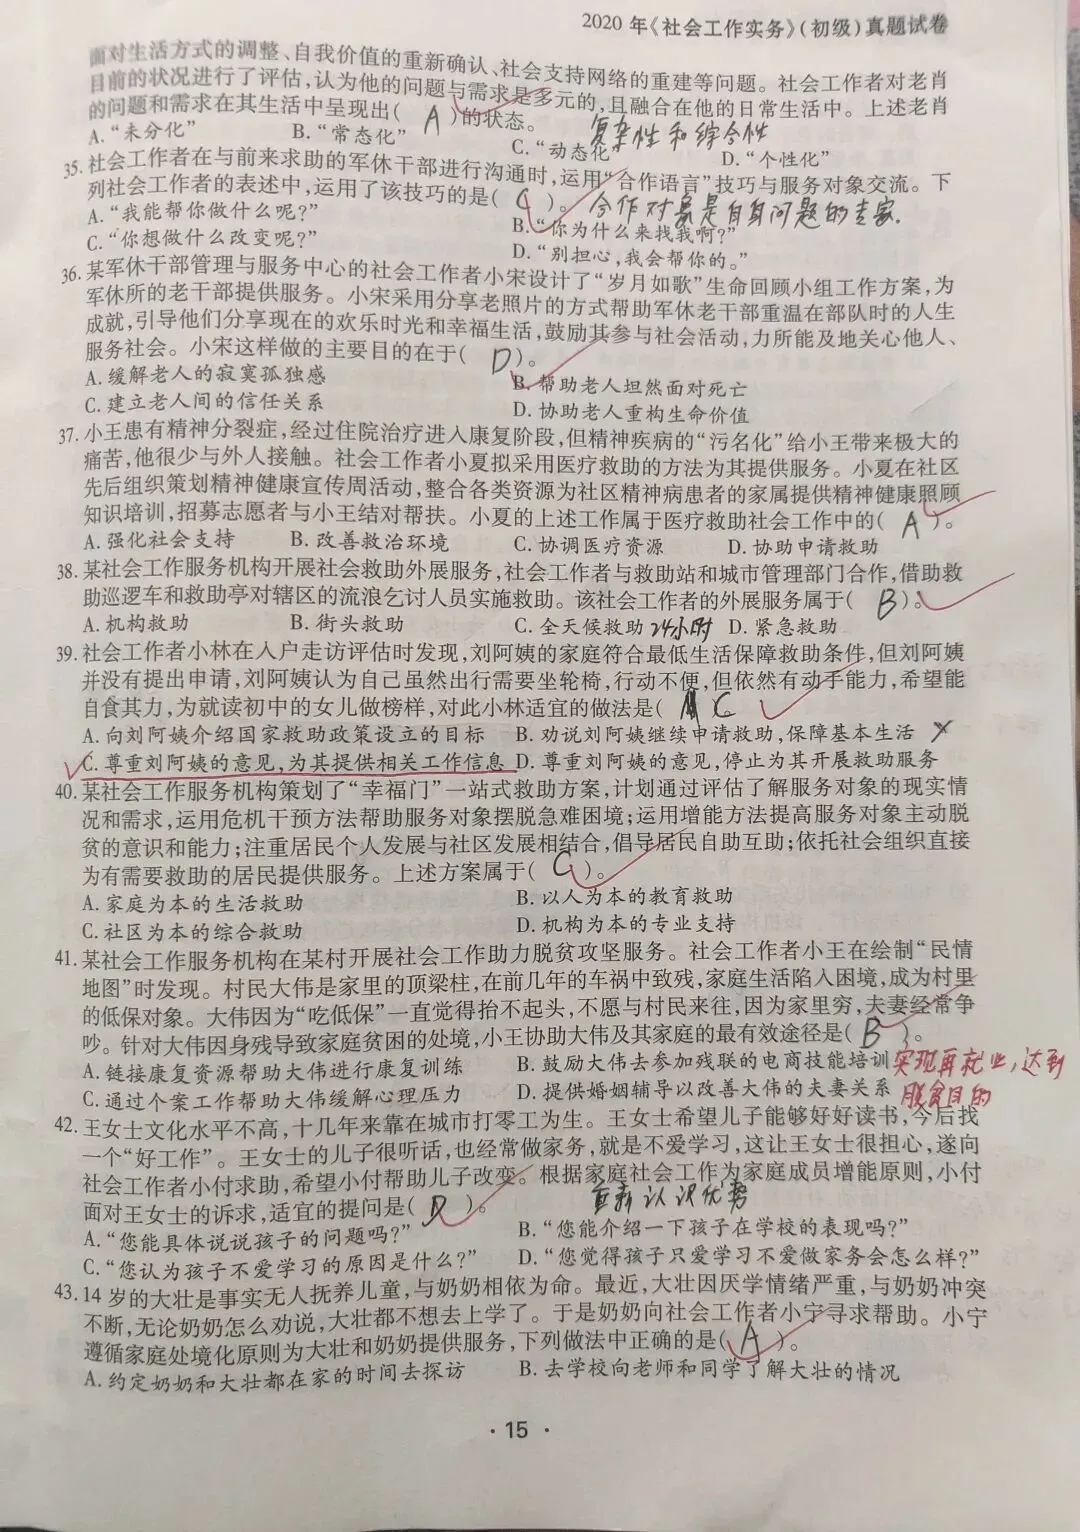 2020 年《社会工作实务》(初级)真题试卷
面对生活方式的调整、自我价值的重新确认、社会支持网络的重建等问题。社会工作者对老肖
目前的状况进行了评估,认为他的问题与需求是多元的,且融合在他的日常生活中。上述老肖
的问题和需求在其生活中呈现出( A )的状态。 复杂性和综合性
A.“未分化” B.“常态化” C.“动态化” D.“个性化”
35. 社会工作者在与前来求助的军休干部进行沟通时,运用“合作语言”技巧与服务对象交流。下
列社会工作者的表述中,运用了该技巧的是( C )。 合作对象是自身问题的专家.
A.“我能帮你做什么呢?” B.“你为什么来找我啊?”
C.“你想做什么改变呢?” D.“别担心,我会帮你的。”
36. 某军休干部管理与服务中心的社会工作者小宋设计了“岁月如歌”生命回顾小组工作方案,为
军休所的老干部提供服务。小宋采用分享老照片的方式帮助军休老干部重温在部队时的人生
成就,引导他们分享现在的欢乐时光和幸福生活,鼓励其参与社会活动,力所能及地关心他人、
服务社会。小宋这样做的主要目的在于( D )。
A. 缓解老人的寂寞孤独感 B. 帮助老人坦然面对死亡
C. 建立老人间的信任关系 D. 协助老人重构生命价值
37. 小王患有精神分裂症,经过住院治疗进入康复阶段,但精神疾病的“污名化”给小王带来极大的
痛苦,他很少与外人接触。社会工作者小夏拟采用医疗救助的方法为其提供服务。小夏在社区
先后组织策划精神健康宣传周活动,整合各类资源为社区精神病患者的家属提供精神健康照顾
知识培训,招募志愿者与小王结对帮扶。小夏的上述工作属于医疗救助社会工作中的( A )。
A. 强化社会支持 B. 改善救治环境 C. 协调医疗资源 D. 协助申请救助
38. 某社会工作服务机构开展社会救助外展服务,社会工作者与救助站和城市管理部门合作,借助救
助巡逻车和救助亭对辖区的流浪乞讨人员实施救助。该社会工作者的外展服务属于( B )。
A. 机构救助 B. 街头救助 C. 全天候救助 24小时 D. 紧急救助
39. 社会工作者小林在入户走访评估时发现,刘阿姨的家庭符合最低生活保障救助条件,但刘阿姨
并没有提出申请,刘阿姨认为自己虽然出行需要坐轮椅,行动不便,但依然有动手能力,希望能
自食其力,为就读初中的女儿做榜样,对此小林适宜的做法是( C
A. 向刘阿姨介绍国家救助政策设立的目标 B. 劝说刘阿姨继续申请救助,保障基本生活
C. 尊重刘阿姨的意见,为其提供相关工作信息 D. 尊重刘阿姨的意见,停止为其开展救助服务
40. 某社会工作服务机构策划了“幸福门”一站式救助方案,计划通过评估了解服务对象的现实情
况和需求,运用危机干预方法帮助服务对象摆脱急难困境;运用增能方法提高服务对象主动脱
贫的意识和能力;注重居民个人发展与社区发展相结合,倡导居民自助互助;依托社会组织直接
为有需要救助的居民提供服务。上述方案属于( C )。
A. 家庭为本的生活救助 B. 以人为本的教育救助
C. 社区为本的综合救助 D. 机构为本的专业支持
41. 某社会工作服务机构在某村开展社会工作助力脱贫攻坚服务。社会工作者小王在绘制“民情
地图”时发现。村民大伟是家里的顶梁柱,在前几年的车祸中致残,家庭生活陷入困境,成为村里
的低保对象。大伟因为“吃低保”一直觉得抬不起头,不愿与村民来往,因为家里穷,夫妻经常争
吵。针对大伟因身残导致家庭贫困的处境,小王协助大伟及其家庭的最有效途径是( B )。
A. 链接康复资源帮助大伟进行康复训练 B. 鼓励大伟去参加残联的电商技能培训 实现再就业,达到
C. 通过个案工作帮助大伟缓解心理压力 D. 提供婚姻辅导以改善大伟的夫妻关系 脱贫目的
42. 王女士文化水平不高,十几年来靠在城市打零工为生。王女士希望儿子能够好好读书,今后找
一个“好工作”。王女士的儿子很听话,也经常做家务,就是不爱学习,这让王女士很担心,遂向
社会工作者小付求助,希望小付帮助儿子改变。根据家庭社会工作为家庭成员增能原则,小付
面对王女士的诉求,适宜的提问是( D )。 重新认识优势
A.“您能具体说说孩子的问题吗?” B.“您能介绍一下孩子在学校的表现吗?”
C.“您认为孩子不爱学习的原因是什么?” D.“您觉得孩子只爱学习不爱做家务会怎么样?”
43. 14 岁的大壮是事实无人抚养儿童,与奶奶相依为命。最近,大壮因厌学情绪严重,与奶奶冲突
不断,无论奶奶怎么劝说,大壮都不想去上学了。于是奶奶向社会工作者小宁寻求帮助。小宁
遵循家庭处境化原则为大壮和奶奶提供服务,下列做法中正确的是( A )。
A. 约定奶奶和大壮都在家的时间去探访 B. 去学校向老师和同学了解大壮的情况
· 15 ·